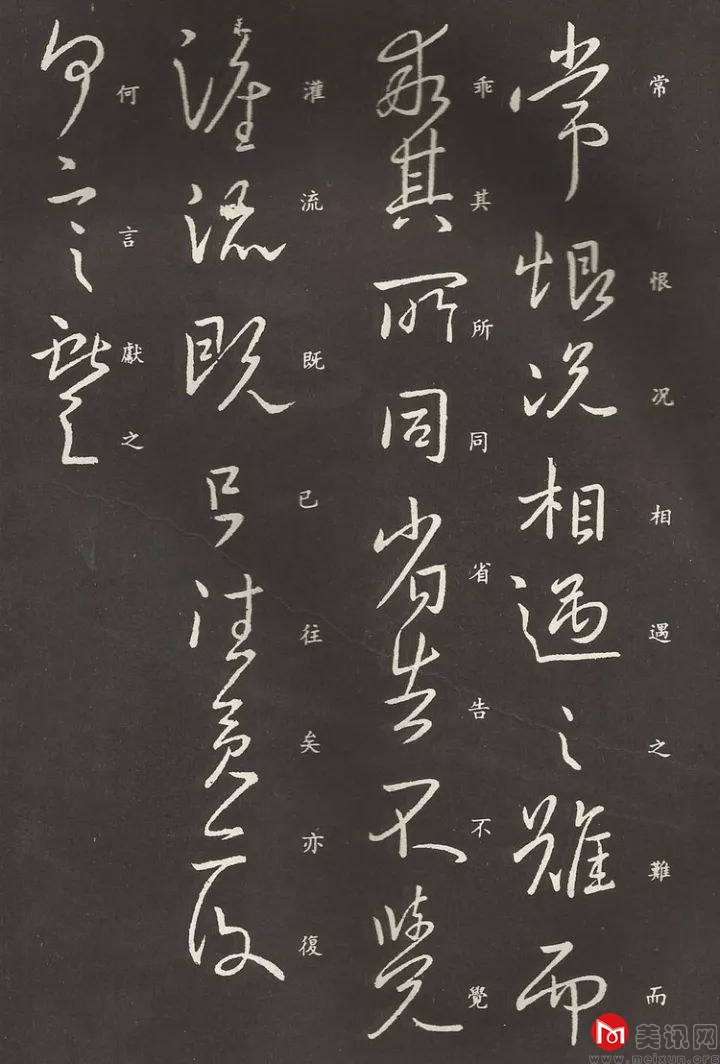 常恨况相遇之難而
乖其所同省告不覺
灌流既已往矣亦復
何言獻之
美讯网
www.meixun.org